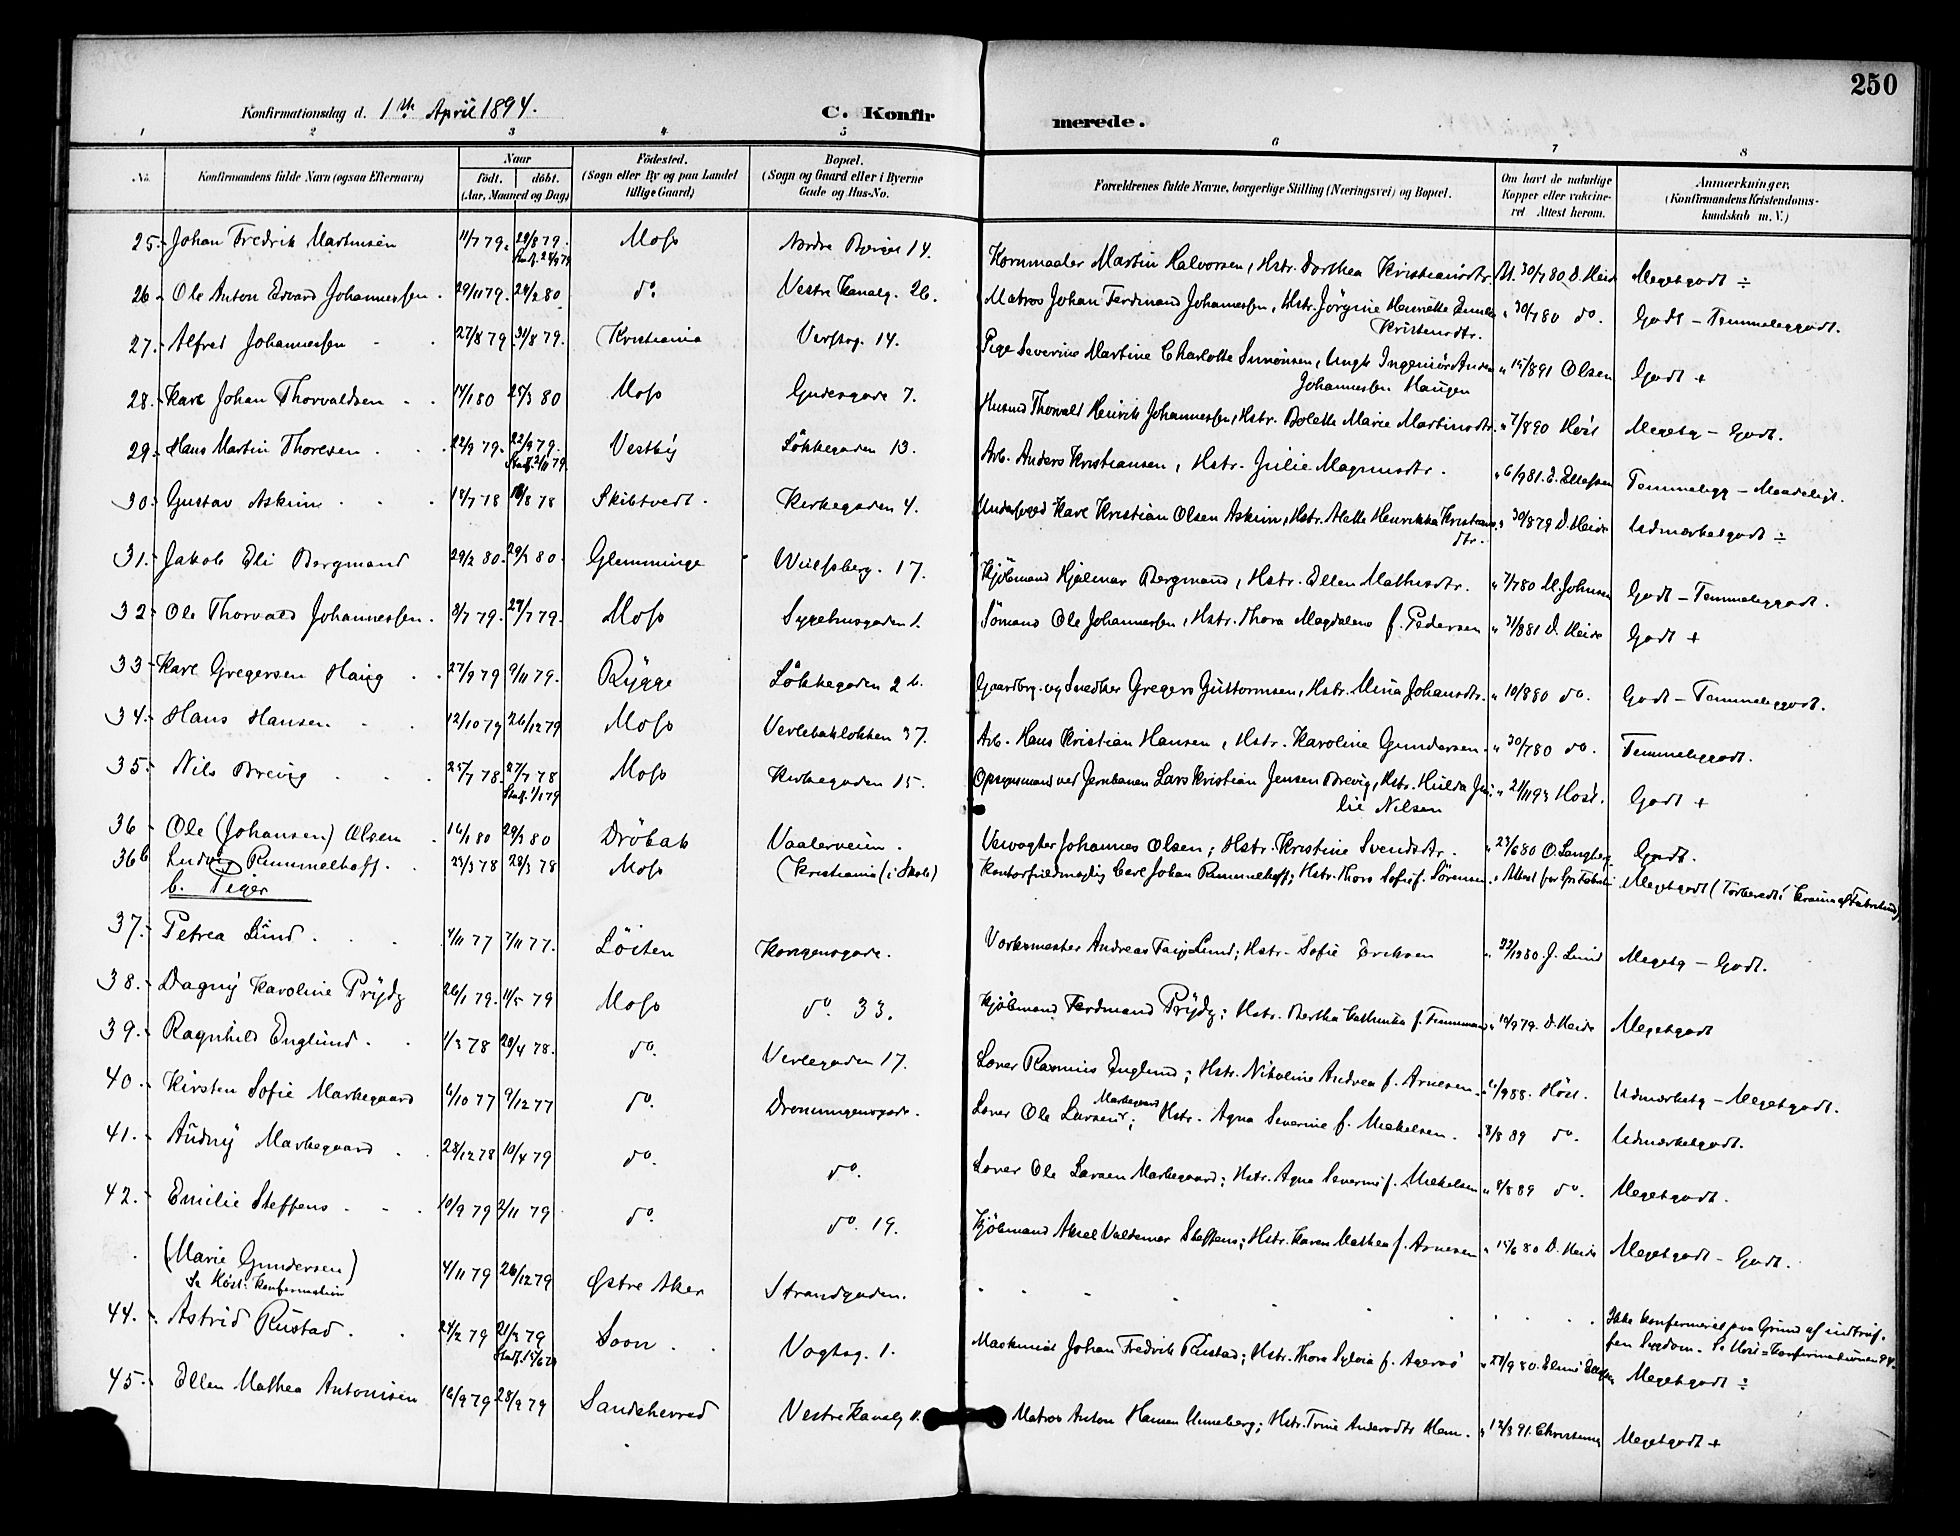 250
Konfirmationsdag d. 1ste April 1894.
C. Konfirmerede.
1 2 3 4 5 6 7 8
No. Konfirmandens fulde Navn (ogsaa Efternavn) Naar født. døbt. (Aar, Maaned og Dag) Fødested. (Sogn eller By og paa Landet tillige Gaard) Bopæl. (Sogn og Gaard eller i Byerne Gade og Hus-No. Forældrenes fulde Navne, borgerlige Stilling (Næringsvei) og Bopæl. Om havt de naturlige Kopper eller vaccineret Attest herom. Anmærkninger. (Konfirmandens Kristendomskundskab m. V.)
25. Johan Fredrik Martinsen 11/7 79. 29/8 79. Stadf. Moss Nordre Bjergg. 14. Kornmaaler Martin Halvorsen, Hstr. Dorthea Kristiansdtr. At. 30/7 80 D. Heide Megetgodt ÷
26. Ole Anton Edvard Johannessen. 29/11 79. 29/2 80 do. Vestre Kanalg. 26. Matros Johan Ferdinand Johannessen, Hstr. Jörgine Henriette Emilie Kristensdtr. " 30/7 80 do. Godt – Temmeliggodt.
27. Alfred Johannessen 27/8 79. 31/8 79. Kristiania Verftsg. 14. Pige Severine Martine Charlotte Simonsen, Ungk. Ingeniör Anders Johannessen Haugen " 15/8 91 Olsen Godt +
28. Karl Johan Thorvaldsen 14/1 80 25/3 80 Moss Gudesgade 7. Husmd Thorvald Henrik Johannessen, Hstr. Bolette Marie Martinsdtr. " 7/8 90 Höst Megetg – Godt.
29. Hans Martin Thoresen 22/9 79. 22/9 79. Stadf. 2/11 79. Vestby Løkkegaden 13. Arb. Anders Kristiansen, Hstr. Julie Magnusdtr. " 6/9 81. E. Ellefsen Temmeligg – Maadeligt.
30. Gustav Askim 18/7 78 18/8 78 Skibtvedt. Kirkegaden 4. Underfoged Karl Kristian Olsen Askim, Hstr. Alette Henrikka Kristiansdtr. " 30/8 79 D. Heide Udmærketgodt ÷
31. Jakob Eli Bergmand 29/2 80. 29/2 80. Glemminge Wulfsberg. 17. Kjöbmand Hjalmar Bergmand, Hstr. Ellen Mathisdtr. " 7/7 80 M. Johnsen Godt – Temmeliggodt.
32. Ole Thorvald Johannessen. 3/7 79. 27/7 79. Moss Sygehusgaden 1. Sömand Ole Johannessen, Hstr. Thora Magdalene f. Pedersen " 31/8 81 D. Heide Godt +
33. Karl Gregersen Haug 27/9 79 9/11 79. Rygge Løkkegaden 2 b. Gaardbrg. og Snedker Gregers Guttormsen, Hstr. Mina Johansdtr. " 10/8 80 do. Godt – Temmeliggodt.
34. Hans Hansen 12/10 79 26/12 79 Moss Verlebakløkken 37. Arb. Hans Kristian Hansen, Hstr. Karoline Gundersen. " 30/7 80 do. Temmeliggodt.
35. Nils Brevig 25/7 78. 27/7 78 Stadf. 1/1 79 Moss Kirkegaden 15. Opsynsmand ved Jernbanen Lars Kristian Jensen Brevig, Hstr. Hulda Julie Nilsen " 21/11 93 Höst. Godt +
36 Ole (Johansen) Olsen 16/1 80 29/3 80 Dröbak Vaalerveien. Veivogter Johannes Olsen; Hstr. Kristine Svendsdtr. " 23/6 80 O. Langberg Godt.
36b Ludvig Rummelhoff. 23/3 78 28/3 78 Moss Kristiania (i Skole) Kontorfuldmegtig Carl Johan Rummelhoff; Hstr. Thora Sofie f. Sörensen. " Attest fra Megetgodt (Forberedt i Krania af
b. Piger
37. Petrea Lund. 4/11 77 7/11 77. Löiten Kongensgade. Værksmester Andreas Lund; Hstr. Sofie Eriksen " 80. J. Lund Megetg – Godt.
38. Dagny Karoline Prydz 26/1 79. 11/5 79 Moss do. 33. Kjöbmand Ferdinand Prydz; Hstr. Bertha Kathinka f. " 19/9 79. D. Heide Megetgodt
39. Ragnhild Englund 1/3 78 28/4 78. do. Verlegaden 17. Lærer Rasmus Englund; Hstr. Nikoline Andrea f. Arnesen. " /9 88. Höst. Udmærketg – Megetgodt.
40. Kirsten Sofie Markegaard 6/10 77 9/12 77 do. Dronningensgade. Lærer Ole Larsen Markegaard; Hstr. Agna Severine f. Mickelsen. " 8/8 89 do. Udmærketgodt.
41. Audny Markegaard 28/12 78 10/4 79 do. do. Lærer Ole Larsen Markegaard; Hstr. Agna Severine f. Mickelsen " 8/8 89 do. Megetgodt.
42. Emilie Steffens 10/9 79 2/11 79 do. do. 19. Kjöbmand Aksel Valdemar Steffens; Hstr. Karen Mathea f. Arnesen " 15/6 80 D. Heide Megetgodt – Godt.
(Marie Gundersen) Se Höst. Konfirmation 4/11 79 26/12 79 Østre Aker Strandgaden. Ikke konfirmeret paa Grund af indtruffen Sygdom. Se Höst-Konfirmationen 94.
44. Astrid Rustad. 24/2 79 21/3 79 Stadf. 15/6 79 Soon Vogtsg. 1. Maskinist Johan Fredrik Rustad; Hstr. Thora Sylvia f. " 27/9 80. Megetgodt ÷
45. Ellen Mathea Antonisen 16/9 79 28/9 79 Sandeherred Vestre Kanalg 11. Matros Anton Hansen Unneberg; Hstr. Trine Andersdtr Hem. " 12/3 91. Christensen Megetgodt +